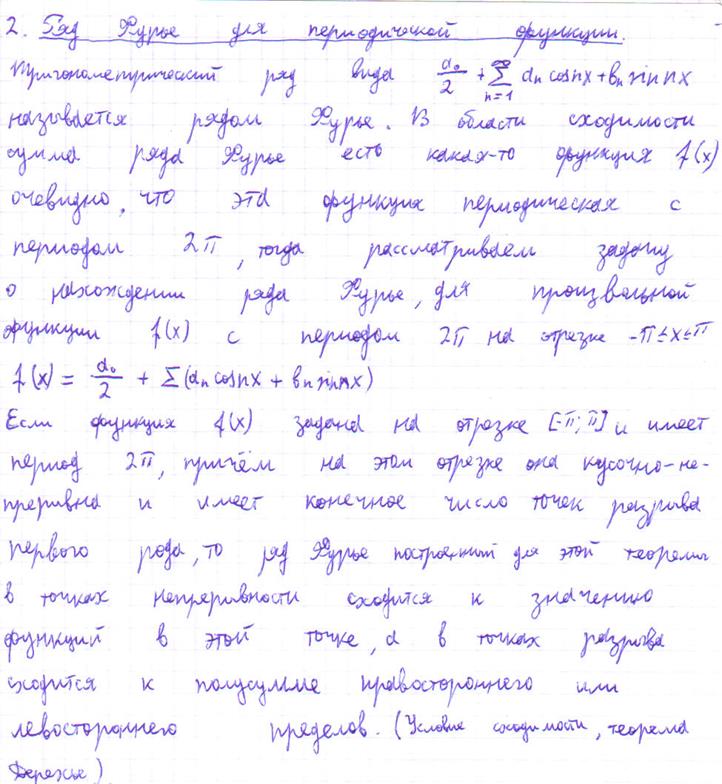 2. Ряд Фурье для периодической функции.
Тригонометрический ряд вида a₀/2 + ∑ₙ₌₁^∞ aₙ cos nx + bₙ sin nx
называется рядом Фурье. В области сходимости
сумма ряда Фурье есть какая-то функция f(x)
очевидно, что эта функция периодическая с
периодом 2π, тогда рассматриваем задачу
о нахождении ряда Фурье, для произвольной
функции f(x) с периодом 2π на отрезке -π≤x≤π
f(x) = a₀/2 + ∑(aₙ cos nx + bₙ sin nx)
Если функция f(x) задана на отрезке [-π;π] и имеет
период 2π, причём на этом отрезке она кусочно-не-
прерывна и имеет конечное число точек разрыва
первого рода, то ряд Фурье построенный для этой теоремы
в точках непрерывности сходится к значению
функций в этой точке, а в точках разрыва
сходится к полусумме правостороннего или
левостороннего пределов. (Условие сходимости, теорема
Дерехле)